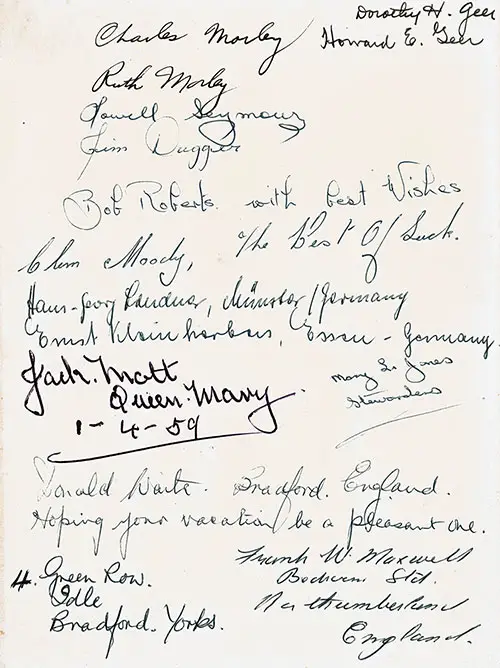 Dorothy H. Geer
Howard E. Geer
Charles Morley
Ruth Morley
Lowell Seymour
Jim Dugger
Bob Roberts with best Wishes
The Best Of Luck.
Clem Moody,
Hans-Georg Lindner, Münster/Germany
Ernst Essen - Germany.
Jack. Mott
Queen. Mary.
1-4-59
Mary L. Jones
Stewardess
Donald Waite. Bradford. England.
Hoping your vacation be a pleasant one.
4. Green Row.
Idle
Bradford. Yorks.
Frank W. Maxwell
Std.
Northumberland
England.